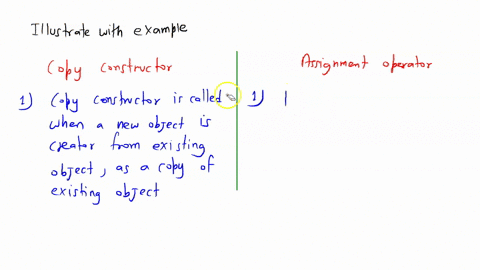 Illustrate with example
Copy constructor
1) Copy constructor is called
when a new object is
creator from existing
object, as a copy of
existing object
Assignment operator
1)